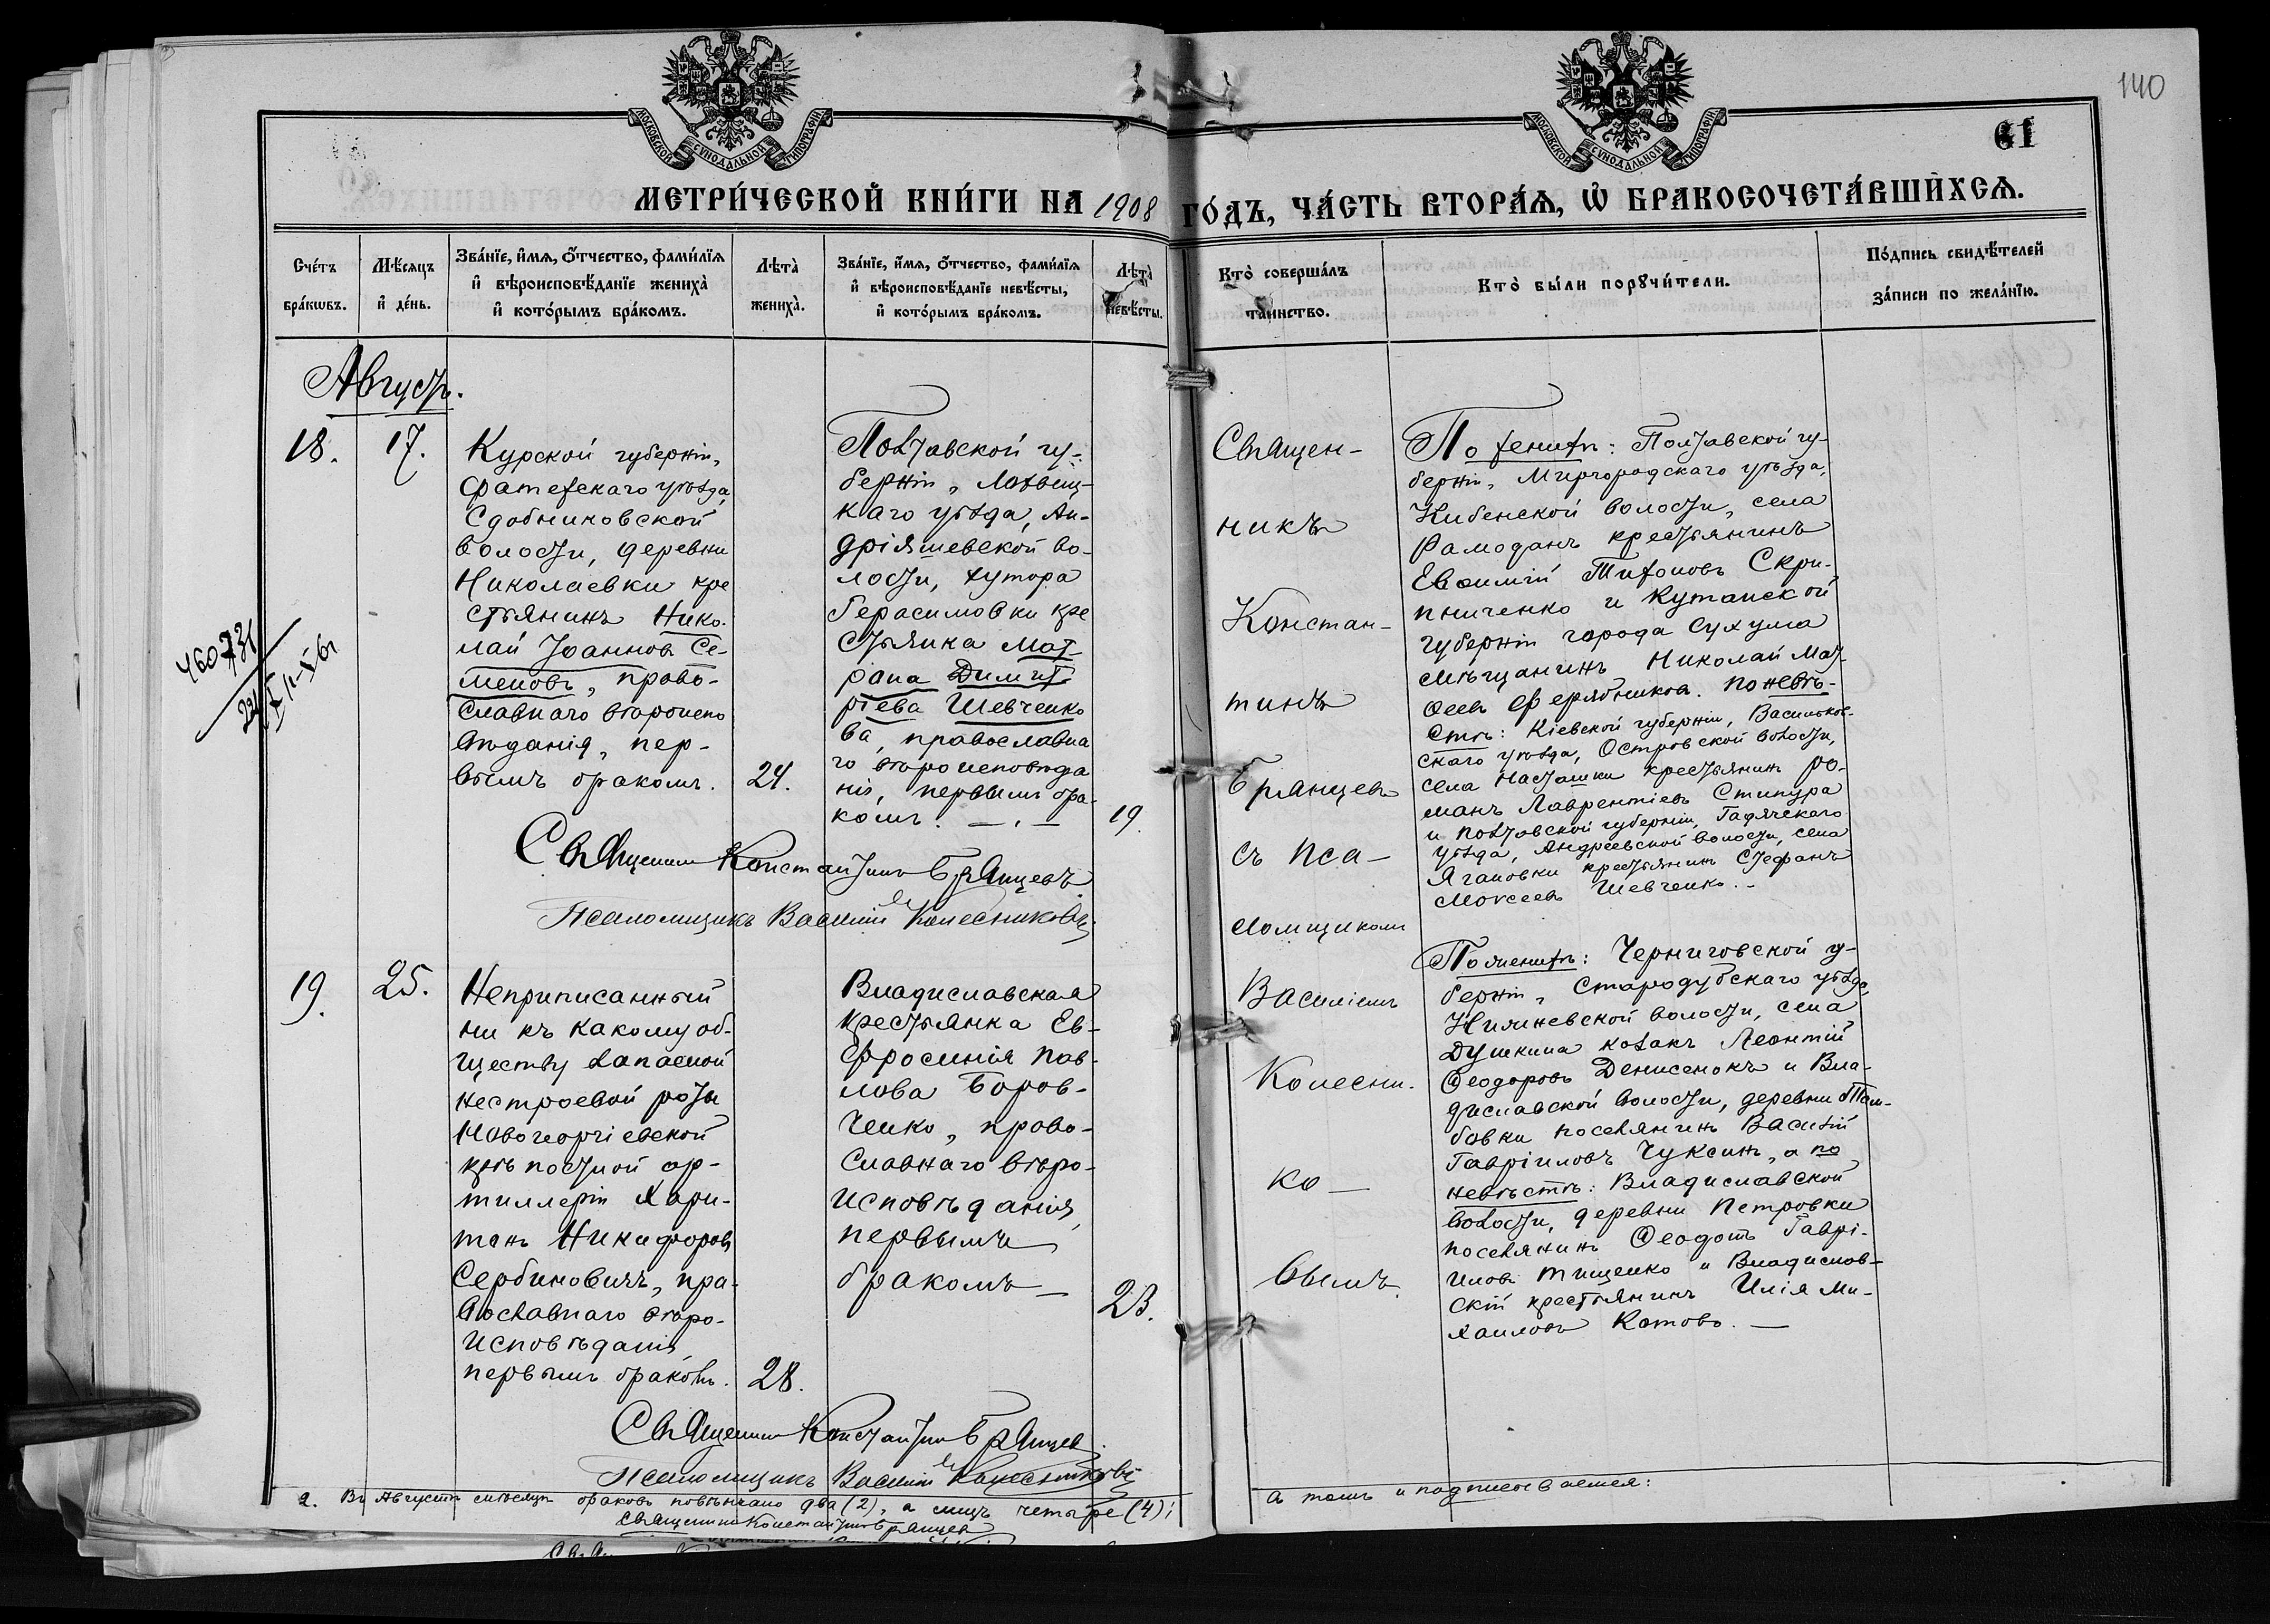 140
61
МОСКОВСКОЙ СѴНОДАЛЬНОЙ ТИПОГРАФІИ
МОСКОВСКОЙ СѴНОДАЛЬНОЙ ТИПОГРАФІИ
МЕТРИ́ЧЕСКОЙ КНИ́ГИ НА 1908 ГО́ДЪ, ЧА́СТЬ ВТОРА́Ѧ, Ѽ БРАКОСОЧЕТА́ВШИХСѦ.
Сче́тъ
бра́кѡвъ.
Мѣ́сѧцъ
и҆ де́нь.
Зва́нїе, и҆́мѧ, ѻ҆́тчество, фами́лїѧ
и҆ вѣроисповѣ́данїе жениха̀
и҆ кото́рымъ бра́комъ.
Лѣта̀
жениха̀.
Зва́нїе, и҆́мѧ, ѻ҆́тчество, фами́лїѧ
и҆ вѣроисповѣ́данїе невѣ́сты,
и҆ кото́рымъ бра́комъ.
Лѣта̀
невѣ́сты.
Кто̀ соверша́лъ
таинство.
Кто̀ бы́ли порꙋчи́тели.
По́дпись свидѣ́телей
за́писи по жела́нїю.
Августъ.
18.
17.
Курской губерніи,
Фатежскаго уѣзда
Сдобниковской
волости, деревни
Николаевки кре
стьянинъ Нико-
лай Іоанновъ Се-
меновъ, право-
славнаго вѣроиспо
вѣданія, пер-
вымъ бракомъ.
24.
Полтавской гу-
берніи, Лохвиц-
каго уѣзда, Ан-
дріяшевской во-
лости, хутора
Герасимовки кре
стьянка Мат-
рона Димит
ріева Шевченко
ва, православна
го вѣроисповѣда
нія, первымъ бра-
комъ.
19.
Священникъ Константинъ Брянцевъ
Псаломщикъ Василій Колесниковъ
460731
Священ-
никъ
Констан-
тинъ
Брянцевъ
съ Пса-
ломщикомъ
Василіемъ
Колесни-
ко-
вымъ.
По женихѣ: Полтавской гу-
берніи, Миргородскаго уѣзда,
Кибенской волости, села
Рамоданъ крестьянинъ
Евѳимій Тихоновъ Скри-
пниченко и Кутаиской
губерніи города Сухума
мѣщанинъ Николай Мат-
ѳеевъ Ферябниковъ. По невѣ-
стѣ: Кіевской губерніи, Васильков-
скаго уѣзда, Островской волости,
села Насташки крестьянинъ Ро-
манъ Лаврентіевъ Стипура
и Полтавской губерніи, Гадячскаго
уѣзда, Андреевской волости, села
Ягановки крестьянинъ Стефанъ
Моисеевъ Шевченко.
19.
25.
Неприписанный
ни къ какому об-
ществу запасной
нестроевой роты
Новогеоргіевской
крѣпостной ар-
тиллеріи Хари-
тонъ Никифоровъ
Сербиновичъ, пра-
вославнаго вѣро-
исповѣданія,
первымъ бракомъ.
28.
Владиславская
крестьянка Ев-
фросинія Пав-
лова Боров-
ченко, право-
славнаго вѣро-
исповѣданія,
первымъ
бракомъ
23.
По женихѣ: Черниговской гу-
берніи, Стародубскаго уѣзда,
Нижневской волости, села
Душкина козакъ Леонтій
Ѳеодоровъ Денисенокъ и Вла-
диславской волости, деревни Там-
бовки поселянинъ Василій
Гавріиловъ Чуксинъ, а по
невѣстѣ: Владиславской
волости, деревни Петровки
поселянинъ Ѳеодотъ Гаврі-
иловъ Тищенко и Владислав-
скій крестьянинъ Илія Ми-
хаиловъ Котовъ.
Священникъ Константинъ Брянцевъ
Псаломщикъ Василій Колесниковъ
2. Въ Августѣ мѣсяцѣ браковъ повѣнчано два (2), а лицъ четыре (4);
а томъ и подписываемся:
Священникъ Константинъ Брянцевъ